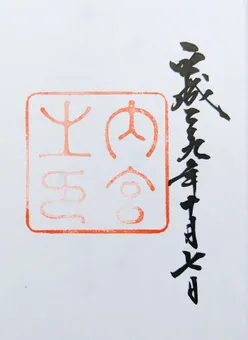 平成二九年十月七日
内宮
之印